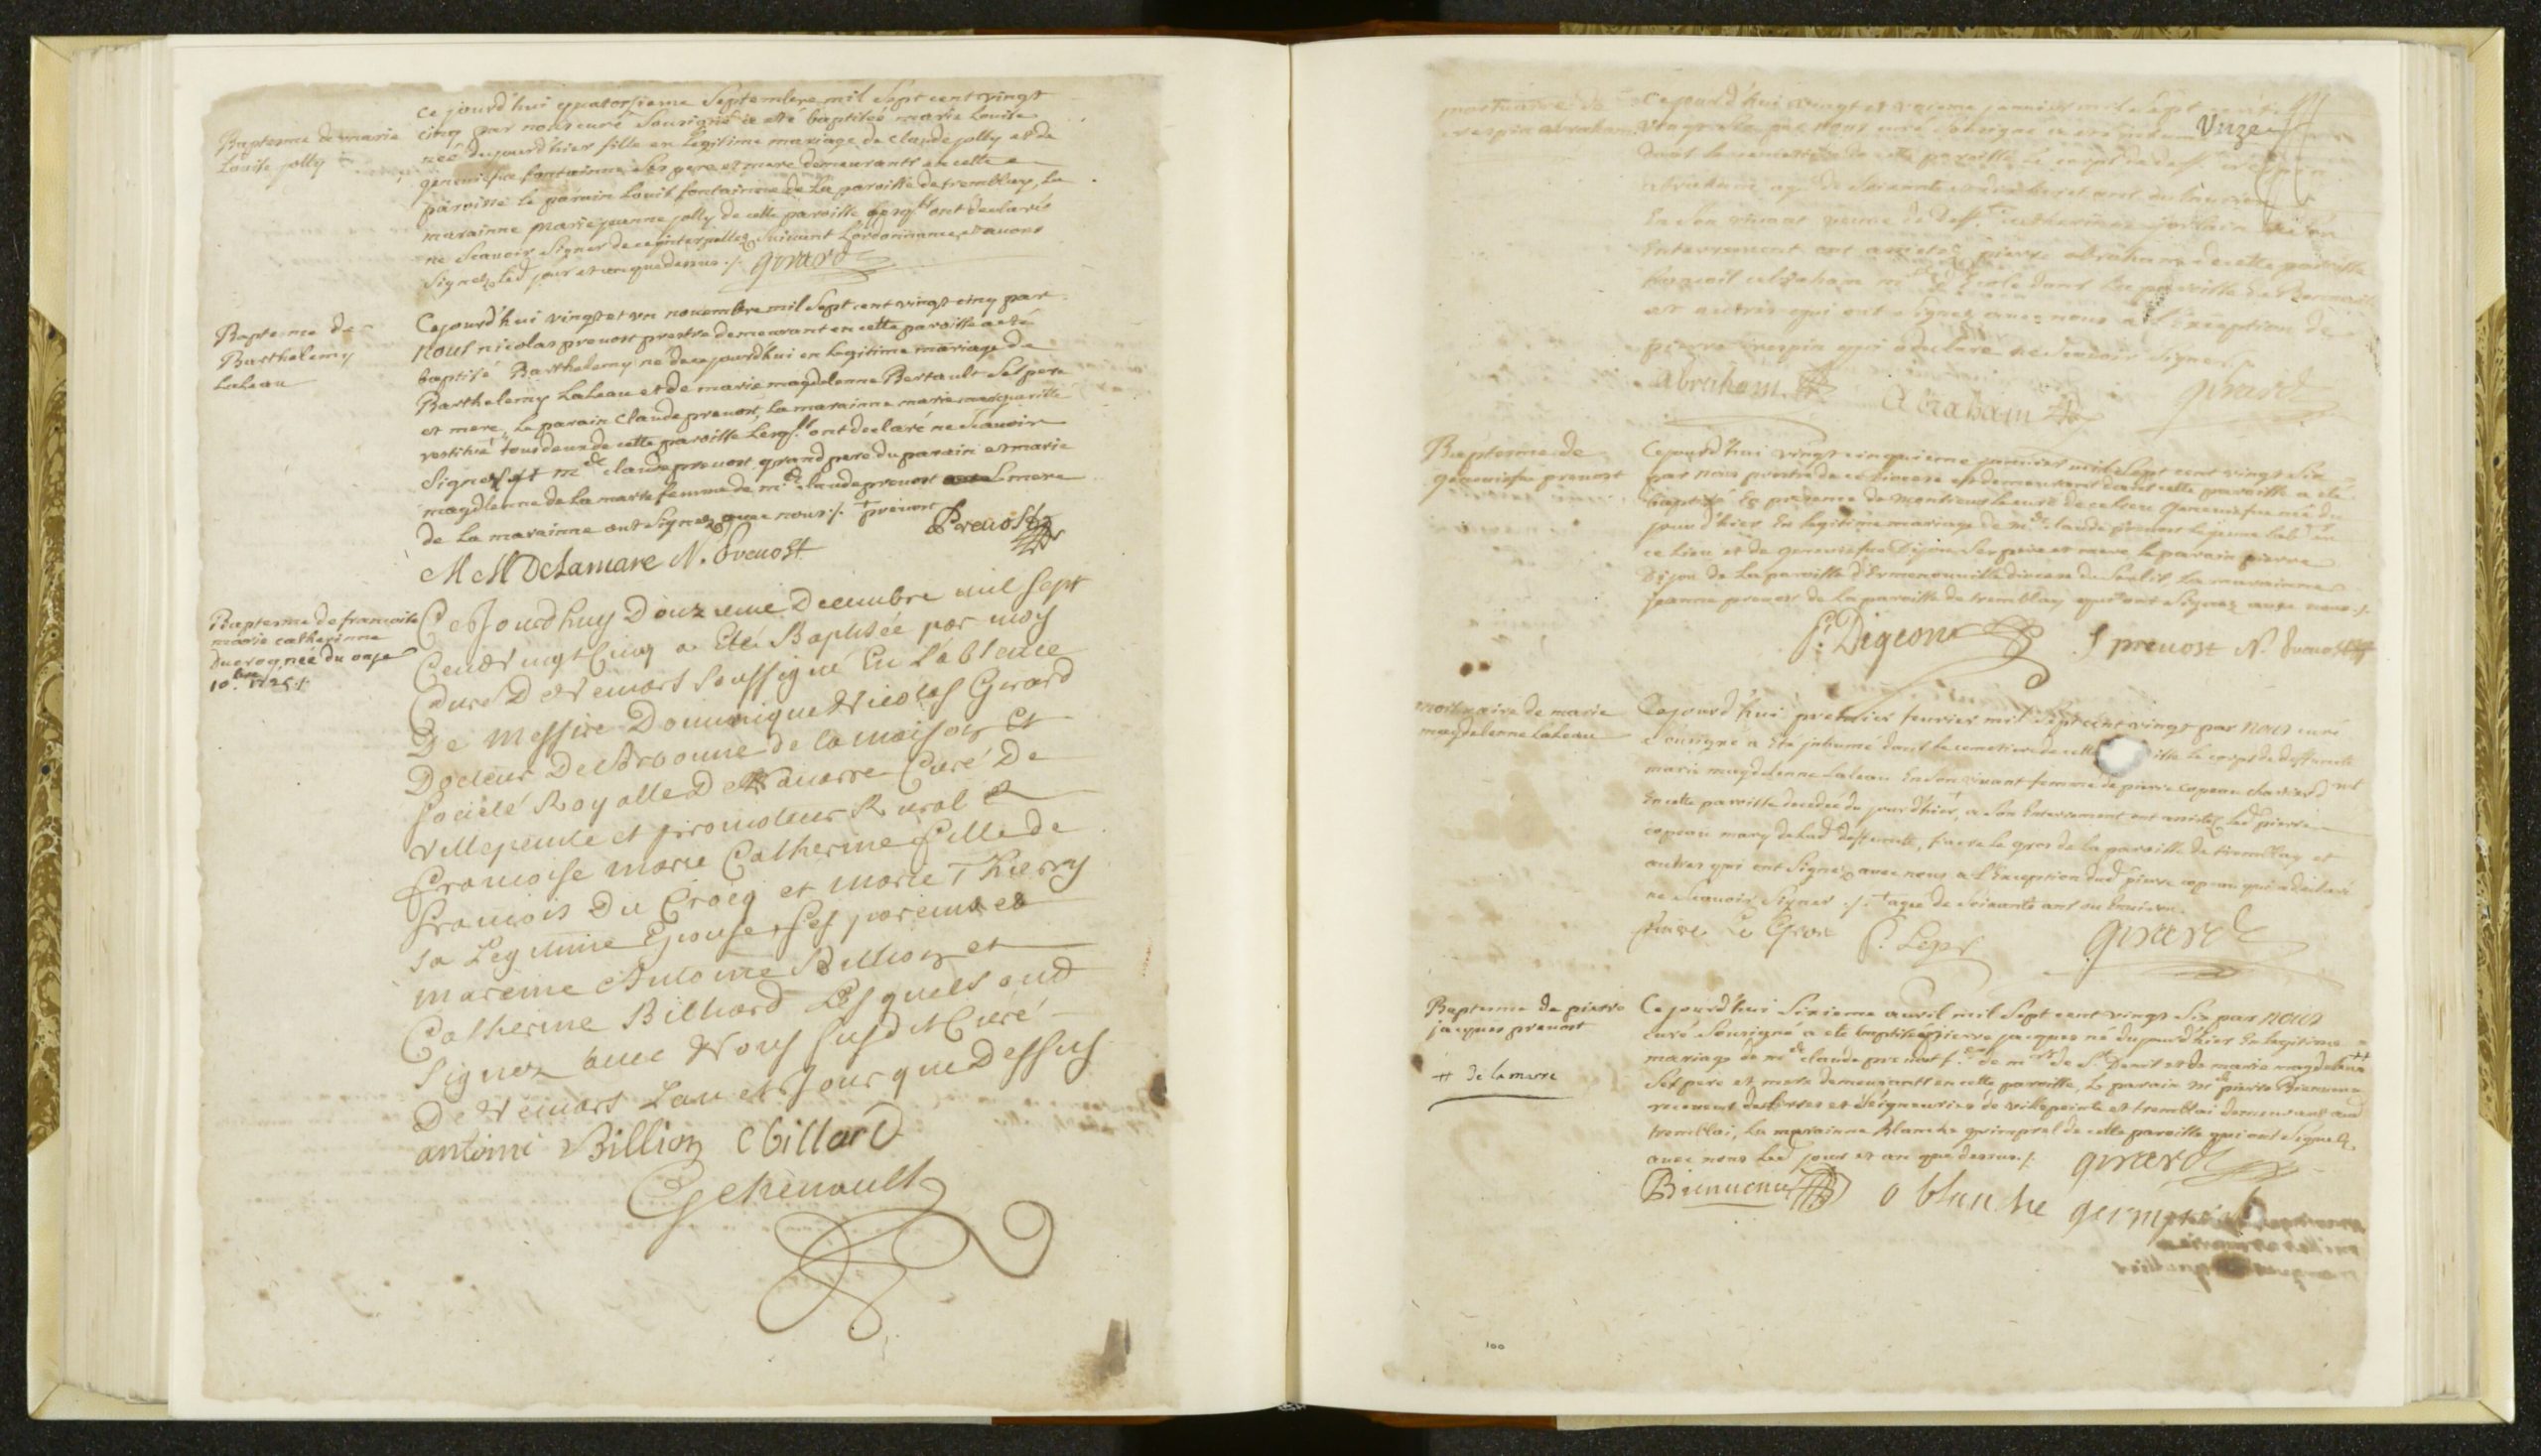 Baptesme de marie
Louise jolly
ce jourd'hui quatorsieme Septembre mil sept cent vingt
cinq par nous curé Sousigné a eté baptisée marie Louise
née du jourd'hier fille en Legitime mariage de Claude jolly et de
geneuiefue fontainne Ses pere et mere demeurants en cette
paroisse le parain Louis fontainne de La paroisse de tremblay, La
marainne Marie jeanne jolly de cette paroisse Lesqls ont declaré
ne Scauoir Signer de ce interpellez Suivant L'ordonnance, et auons
Signez led jour et an que dessus ./. girard
Baptesme de
Barthelemy
Laleau
Cejourd'hui vingt et un nouembre mil Sept cent vingt cinq par
nous nicolas preuost prestre demeurant en cette paroisse a eté
baptisé Barthelemy né de ce jourd'hui en Legitime mariage de
Barthelemy LaLeau et de marie magdelenne Bertault Ses pere
et mere, Le parain Claude preuost, La marainne marie marguerite
tous deux de cette paroisse Lesqls ont declaré ne Scauoir
Signer mre claude preuost grand pere du parain et marie
magdlenne de La marre femme de mre claude preuost mere
de La marainne ont Signez auec nous ./. preuost
Preuost
M M DeLamare N. Preuost
Baptesme de francoise
marie catherinne
ducrocq née du onze
10bre 1725 ./.
Cejourdhuy Douzieme Decembre mil sept
Cent Vingt Cinq a Eté Baptisée par moy
Curé De Vemars soussigné En L'absence
De messire Dominique Nicolas Girard
Docteur De Sorbonne de la maison Et
societé Royalle De Nauarre Curé De
Villepeinte et promoteur Rural
Francoise marie Catherine fille de
francois Du Crocq et marie Thierry
sa Legitime Epouse, ses parein et
mareine Antoine Billion et
Catherine Billiard Lesquels ont
signez auec Nous susdit Curé
De Vemars L'an et Jour que Dessus
antoine Billion C billard
Gchenault
mortuaire de
crespin abraham
Cejourd'hui vingt et unieme januier mil Sept cent
vingt Six par nous curé Sousigné a eté inhumé Unze
dans le cemetiere de cette paroisse Le corps de deff. crespin
abraham agé de Soixante
En Son viuant veuue de deff. catherinne
Enterrement ont assisté pierre abraham de cette paroisse
francois abraham me d'Ecole dans la paroisse de
et autres qui ont Signez auec nous a L'exception de
pierre crespin qui a declaré ne Scauoir Signer
abraham Abraham girard
Baptesme de
geneuiefue preuost
Cejourd'hui vingt cinquieme januier mil Sept cent vingt Six
par nous prestre de ce diocese et demeurant dans cette paroisse a eté
baptisé En presence de Monsieur Le curé de ce lieu geneuiefue née du
jourd'hier En legitime mariage de mre claude preuost Le jeune Lab. en
ce Lieu et de geneuiefue Dijon Ses pere et mere, Le parain pierre
Dijon de La paroisse d'Ermenonuille diocese de Senlis La marainne
jeanne preuost de La paroisse de tremblay qui ont Signez auec nous ./.
P. Digeon J preuost N. Preuost
mortuaire de marie
magdelenne Laleau
Cejourd'hui premier feurier mil Sept cent vingt par nous curé
Sousigné a Eté jnhumé dans Le cemetiere de cette isse Le corps de deffuncte
marie magdelenne Laleau En Son viuant femme de pierre copeau
En cette paroisse decedée du jourd'hier, a Son Enterrement ont assisté Led pierre
copeau mary de Lad deffuncte, pierre Le gros de la paroisse de tremblay et
autres qui ont Signez auec nous a L'Exception dud pierre copeau qui a declaré
ne Scauoir Signer ./. agée de Soixante ans ou Enuiron
Pierre Le Gros girard
Baptesme de pierre
jacques preuost
++ de la marre
Cejourd'hui Sixieme auril mil Sept cent vingt Six par nous
curé Sousigné a eté baptisé pierre jacques né du jourd'hier En legitime
mariage de mre claude preuost f. de mrs de St Denis et de marie magdelene ++
Ses pere et mere demeurants en cette paroisse, Le parain mre pierre Bienuenu
receueur des terres et Seigneuries de villepeinte et tremblai demeurant aud
tremblai, La marainne Blanche guimprel de cette paroisse qui ont Signez
auec nous Led jour et an que dessus ./. girard
Bienuenu blanche
100